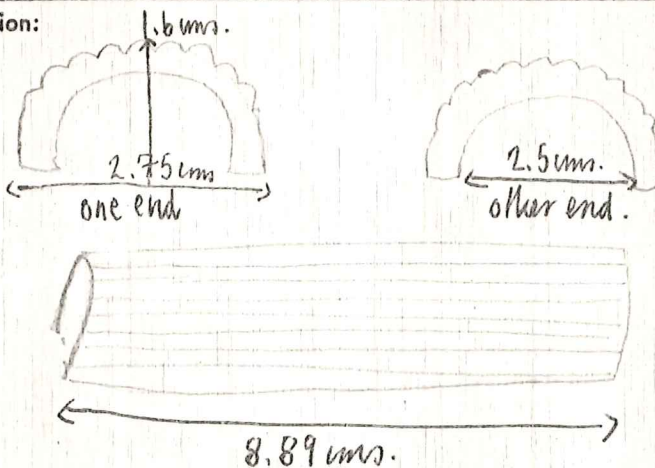 ion:
1.6 cms.
2.75 cms
one end
2.5 cms.
other end.
8.89 cms.